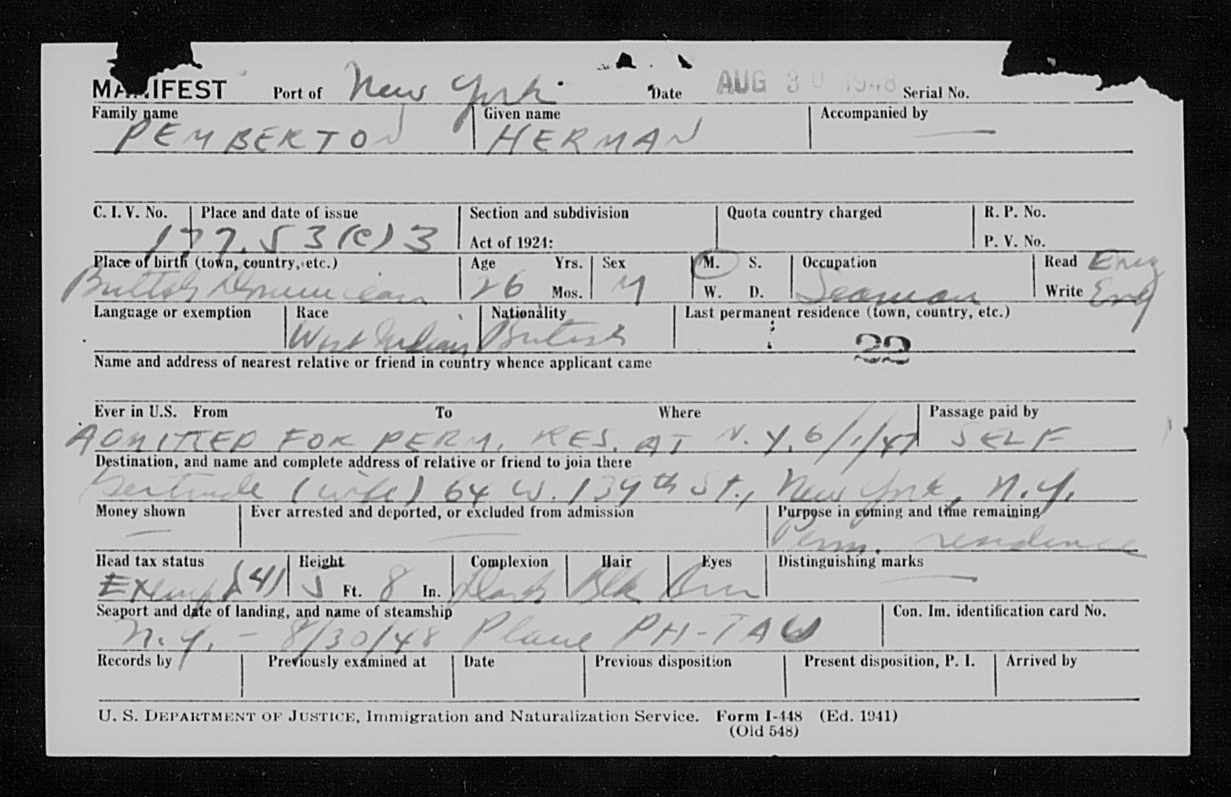 MANIFEST Port of New York Date AUG 30 1948 Serial No.
Family name Given name Accompanied by
PEMBERTON HERMAN —
C. I. V. No. Place and date of issue Section and subdivision Quota country charged R. P. No.
177.53(e)3 Act of 1924: P. V. No.
Place of birth (town, country, etc.) Age Yrs. Sex M. S. Occupation Read Eng
British Dominican 26 Mos. M W. D. Seaman Write Eng
Language or exemption Race Nationality Last permanent residence (town, country, etc.)
West Indian British 22
Name and address of nearest relative or friend in country whence applicant came
Ever in U.S. From To Where Passage paid by
ADMITTED FOR PERM. RES. AT N.Y. 6/1/47 SELF
Destination, and name and complete address of relative or friend to join there
Gertrude (wife) 64 W. 139th St., New York, N.Y.
Money shown Ever arrested and deported, or excluded from admission Purpose in coming and time remaining
— — Perm. residence
Head tax status Height Complexion Hair Eyes Distinguishing marks
Exempt 5 Ft. 8 In. Dark Blk Brn —
Seaport and date of landing, and name of steamship Con. Im. identification card No.
N.Y. - 8/30/48 Plane PH-TAW
Records by Previously examined at Date Previous disposition Present disposition, P. I. Arrived by
U. S. DEPARTMENT OF JUSTICE, Immigration and Naturalization Service. Form I-448 (Ed. 1941)
(Old 548)